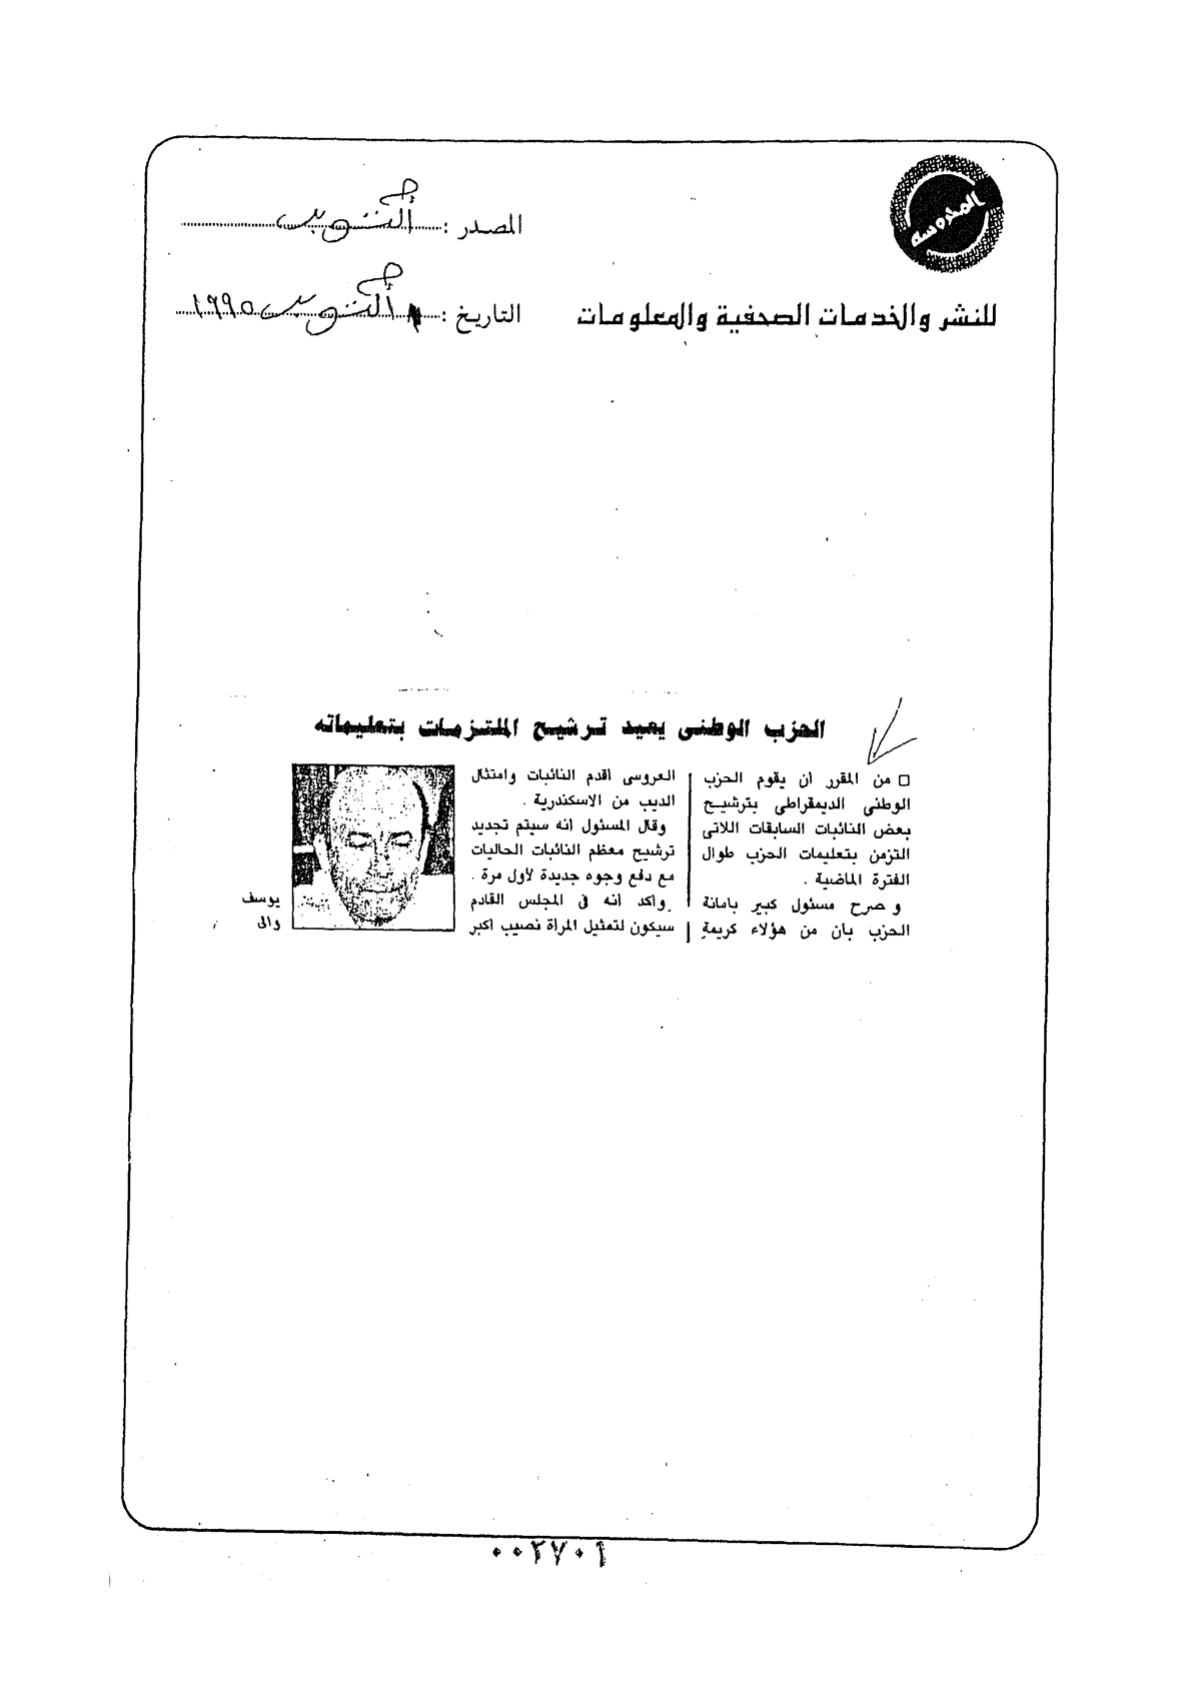 المدروسه
للنشر والخدمات الصحفية والمعلومات
المصدر : أكتوبر
التاريخ : ١ أكتوبر ١٩٩٥
الحزب الوطنى يعيد ترشيح الملتزمات بتعليماته
من المقرر ان يقوم الحزب
الوطنى الديمقراطى بترشيح
بعض النائبات السابقات اللاتى
التزمن بتعليمات الحزب طوال
الفترة الماضية .
و صرح مسئول كبير بامانة
الحزب بان من هؤلاء كريمة
العروسى اقدم النائبات وامتثال
الديب من الاسكندرية .
وقال المسئول انه سيتم تجديد
ترشيح معظم النائبات الحاليات
مع دفع وجوه جديدة لأول مرة .
واكد انه فى المجلس القادم
سيكون لتمثيل المرأة نصيب اكبر
يوسف
والى